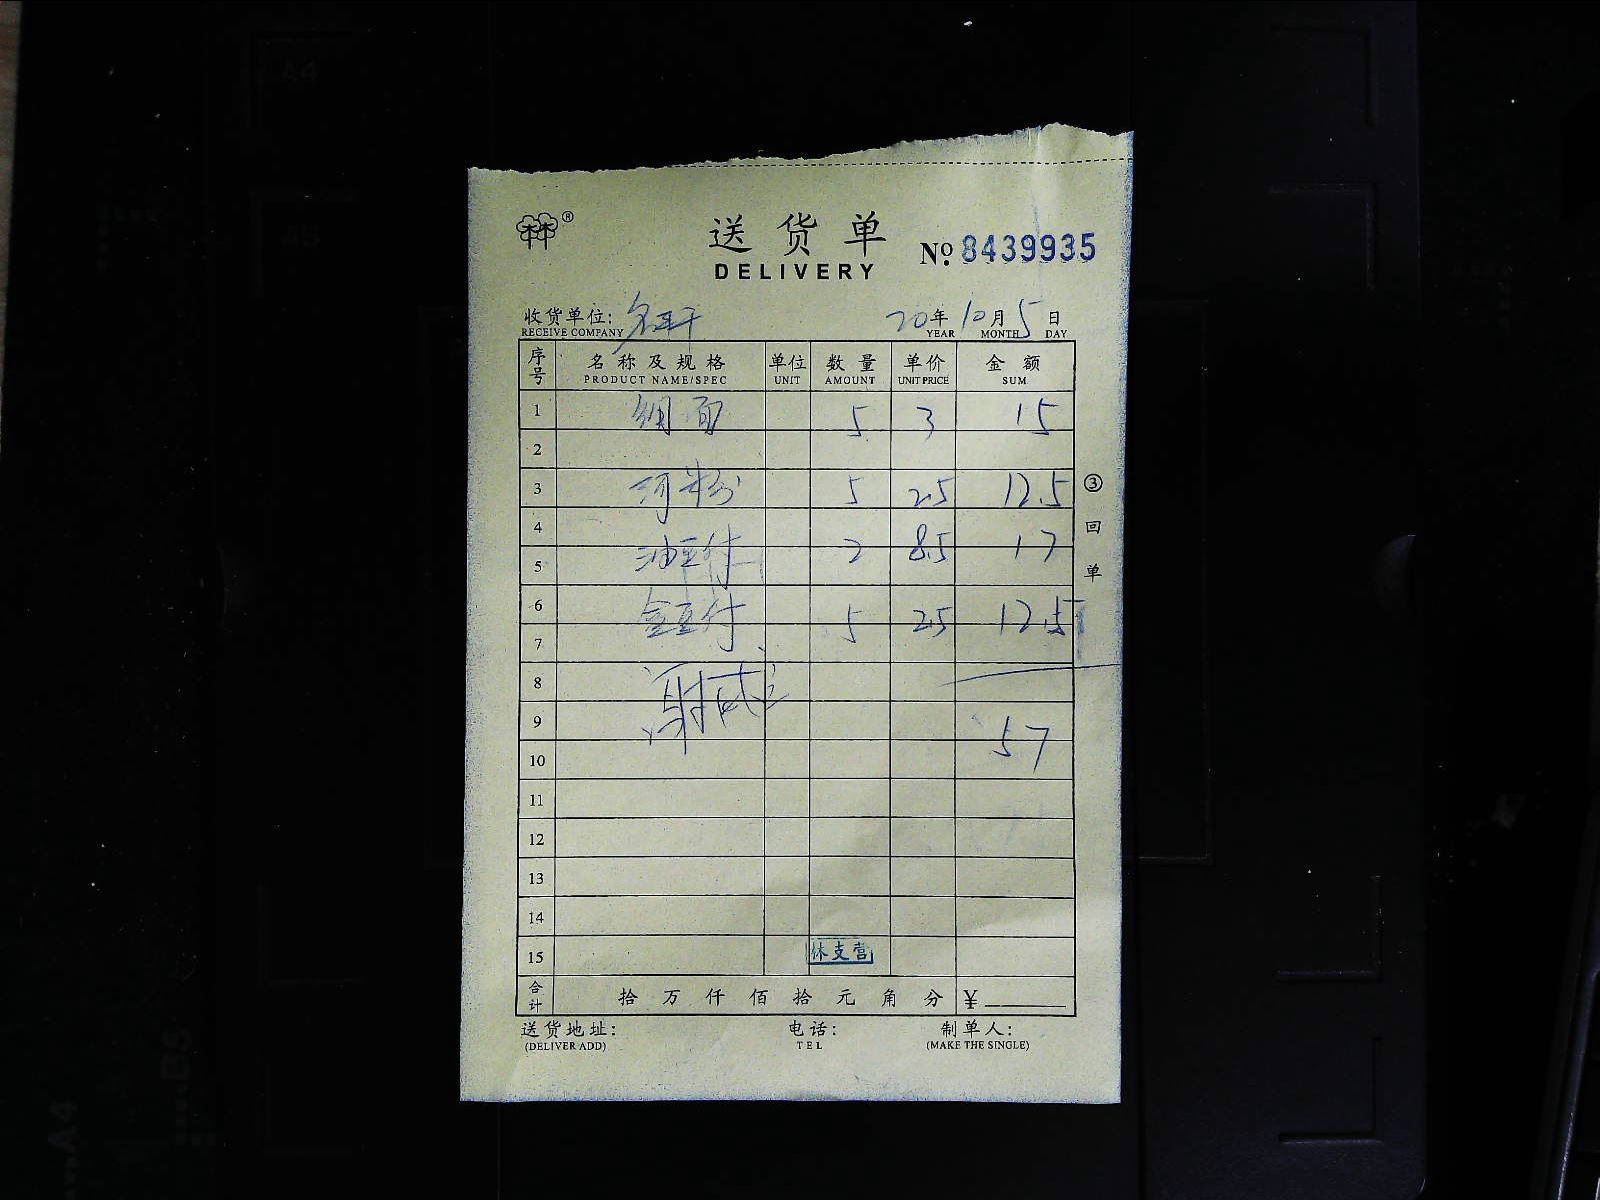 送货单
DELIVERY
No. 8439935
收货单位:
RECEIVE COMPANY
20年 10月 5日
YEAR MONTH DAY
序号 名称及规格 单位 数量 单价 金额
PRODUCT NAME/SPEC UNIT AMOUNT UNIT PRICE SUM
1 细面 5 3 15
2
3 河粉 5 2.5 12.5
4
5 油豆付 2 8.5 17
6
7 金豆付 5 2.5 12.5
8
9 谢 57
10
11
12
13
14
15 休支营
合计 拾 万 仟 佰 拾 元 角 分 ¥
③回单
送货地址: 电话: 制单人:
(DELIVER ADD) TEL (MAKE THE SINGLE)
A4